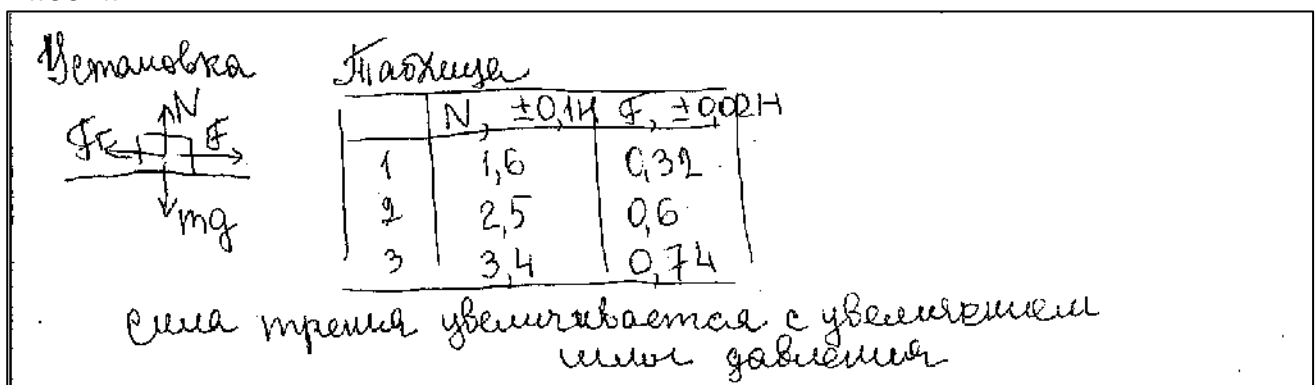 Установка
Таблица
N
Fт F
mg
N, ±0,1Н F, ±0,02Н
1 1,6 0,32
2 2,5 0,6
3 3,4 0,74
сила трения увеличивается с увеличением
силы давления